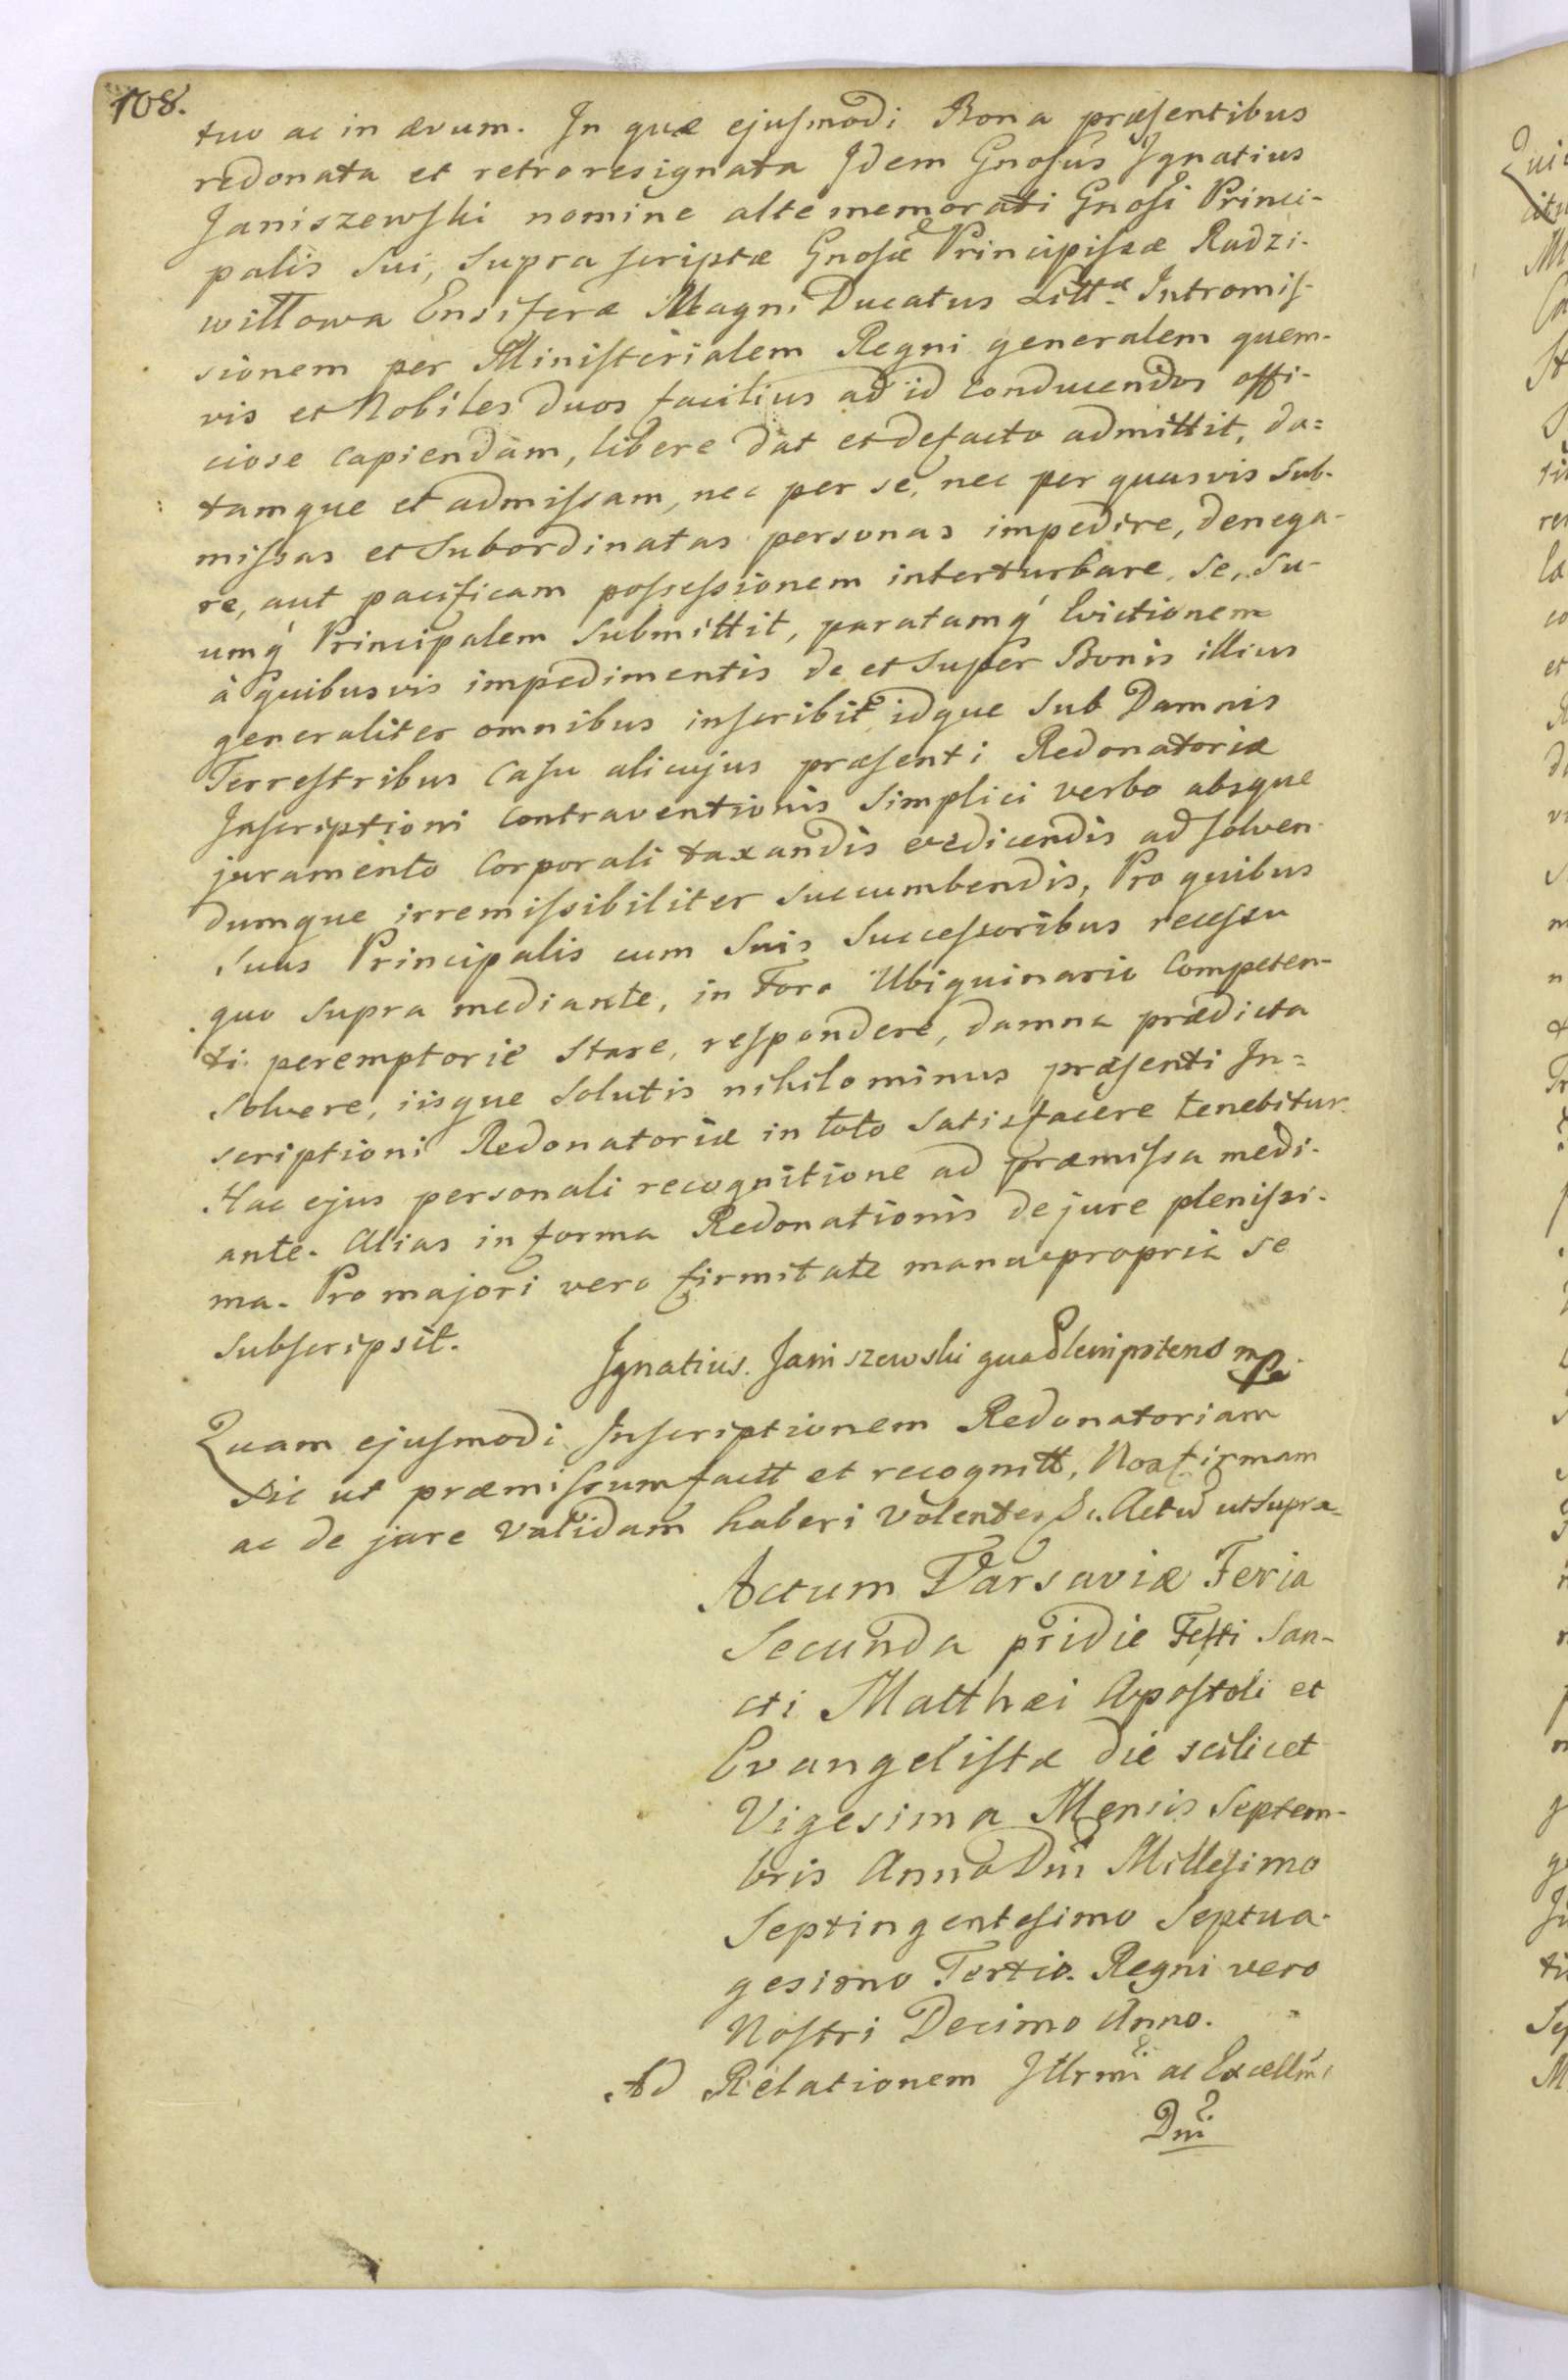 108.
tuo ac in ævum. In quæ ejusmodi Bona præsentibus
redonata et retroresignata Idem Gnosus Ignatius
Janiszewski nomine alte memorati Gnosi Princi-
palis Sui, Supra scriptæ Gnosæ Principissæ Radzi-
willowa Ensiferæ Magni Ducatus Littæ Intromis-
sionem per Ministerialem Regni generalem quem-
vis et Nobiles duos facilius ad id conducendos offi-
ciose capiendam, libere dat et defacto admittit, da=
tamque et admissam, nec per se, nec per quasvis Sub-
missas et Subordinatas personas impedire, denega-
re, aut pacificam possessionem interturbare, Se, Su-
umq́ Principalem Submittit, paratamq́ Evictionem
à quibusvis impedimentis de et Super Bonis illius
generaliter omnibus inscribit, idque Sub Damnis
Terrestribus Casu alicujus præsenti Redonatoriæ
Inscriptioni Contraventionis Simplici verbo absque
juramento Corporali taxandis edicendis ad solven-
dumque irremissibiliter Succumbendis, Pro quibus
Suus Principalis cum Suis Successoribus recessu
quo Supra mediante, in Foro Ubiquinario Competen-
ti peremptorie Stare, respondere, damna prædicta
Solvere, iisque Solutis nihilominus præsenti In=
scriptioni Redonatoriæ in toto Satisfacere tenebitur.
Hac ejus personali recognitione ad præmissa medi-
ante. Alias in forma Redonationis de jure plenissi-
ma. Pro majori vero firmitate manu propria se
Subscripsit.
Ignatius Janiszewski qua Plenipotens mp.
Quam ejusmodi Inscriptionem Redonatoriam
Sic ut præmissum factt et recognitt, Nos firmam
ac de jure validam haberi Volentes &c. Actu ut Supra
Actum Varsaviæ Feria
Secunda pridie Festi San-
cti Matthæi Apostoli et
Evangelistæ die scilicet
Vigesima Mensis Septem-
bris Anno Dni Millesimo
Septingentesimo Septua-
gesimo Tertio. Regni vero
Nostri Decimo Anno.
Ad Relationem Illrmi ac Excellmi
Dni